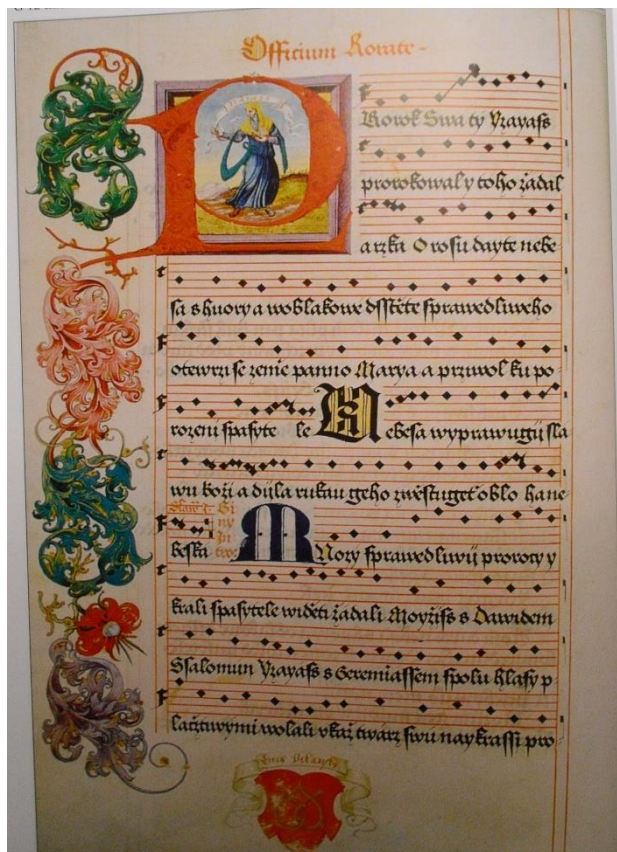 Officium Rorate
Prorok Swaty Yzayass
prorokowal y toho żadal
a rzka O rosu dayte nebe
sa s huory a woblakowe dsstěte sprawedliweho
otewrzi se zemie panno Marya a przwol ku po-
rozeni spasyte le Nebesa wyprawugij sla
wu boži a dijla rukau geho zwěstuget oblo hane-
beska
Mnozy sprawedliwij prorocy y
krali spasytele widěti žadali Moyžiss s Dawidem
Ssalomun Yzayass s Geremiassem spolu hlasy p
lacžtwymi wolali vkaž twárz swu naykrassi pro